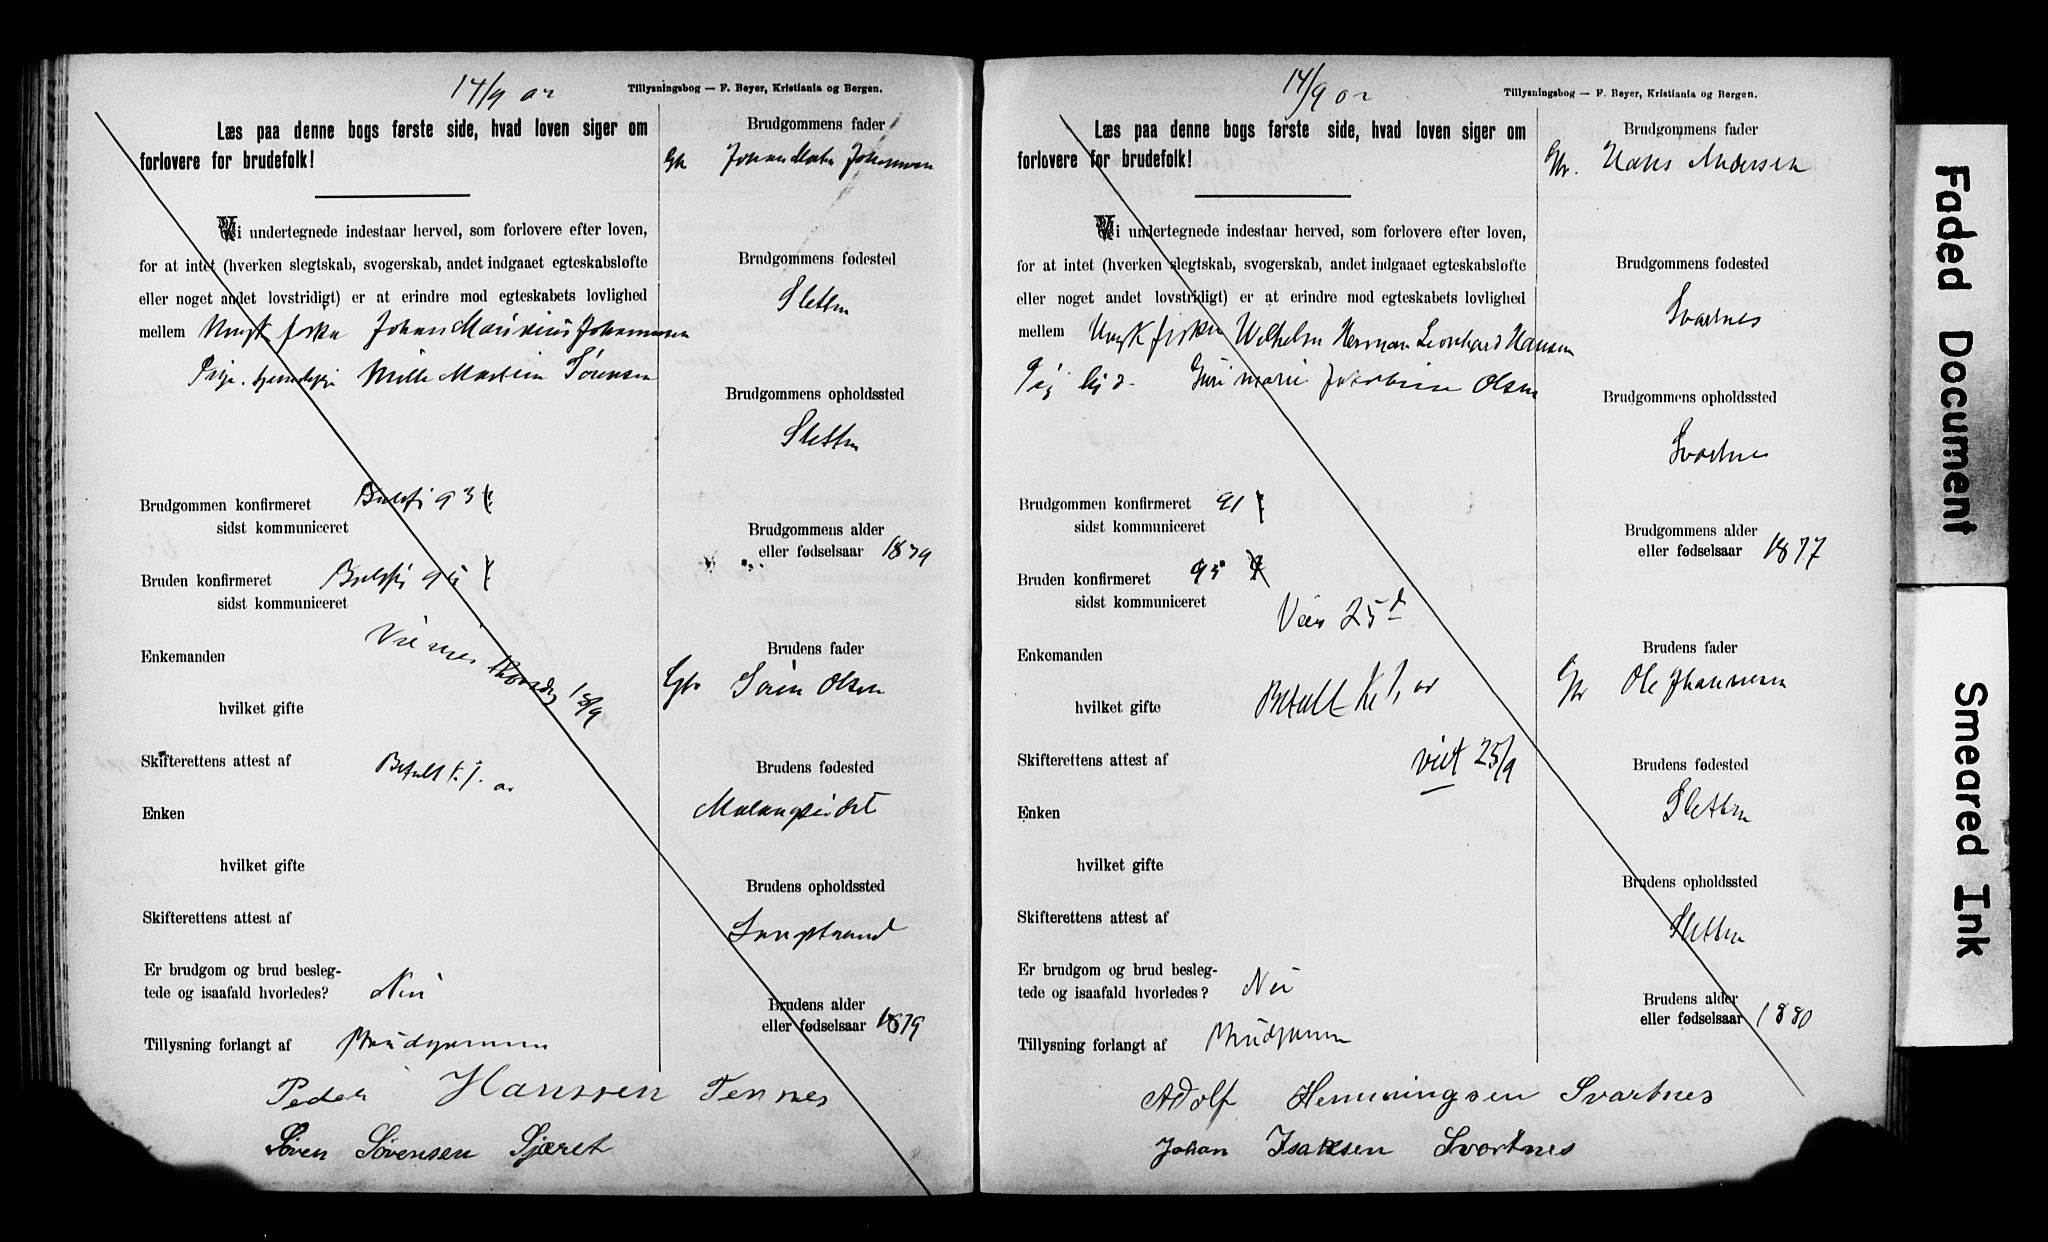 14/9 02
Tillysningsbog — F. Beyer, Kristiania og Bergen.
Læs paa denne bogs første side, hvad loven siger om
forlovere for brudefolk!
Vi undertegnede indestaar herved, som forlovere efter loven,
for at intet (hverken slegtskab, svogerskab, andet indgaaet egteskabsløfte
eller noget andet lovstridigt) er at erindre mod egteskabets lovlighed
mellem Ungk. fisker Johan Maurinius Johannesen
Pige Mille Martine Sørensen
Brudgommen konfirmeret Balsfj 93
sidst kommuniceret
Bruden konfirmeret Balsfj
sidst kommuniceret
Enkemanden
hvilket gifte 18/9
Skifterettens attest af Betalt
Enken
hvilket gifte
Skifterettens attest af
Er brudgom og brud besleg-
tede og isaafald hvorledes? Nei
Tillysning forlangt af Brudgommen
Brudgommens fader
Johan Johannesen
Brudgommens fødested
Sletten
Brudgommens opholdssted
Sletten
Brudgommens alder
eller fødselsaar 1879
Brudens fader
Søren Olsen
Brudens fødested
Malangseidet
Brudens opholdssted
Brudens alder
eller fødselsaar 1879
Peder Hanssen Tennes
Søren Sørensen Sjæret
14/9 02
Tillysningsbog — F. Beyer, Kristiania og Bergen.
Læs paa denne bogs første side, hvad loven siger om
forlovere for brudefolk!
Vi undertegnede indestaar herved, som forlovere efter loven,
for at intet (hverken slegtskab, svogerskab, andet indgaaet egteskabsløfte
eller noget andet lovstridigt) er at erindre mod egteskabets lovlighed
mellem Ungk fisker Wilhelm Herman Leonhard Hansen
Marie Jakobine Olsen
Brudgommen konfirmeret 91
sidst kommuniceret
Bruden konfirmeret 95
sidst kommuniceret
25
Enkemanden
hvilket gifte Betalt
Skifterettens attest af
viet 25/9
Enken
hvilket gifte
Skifterettens attest af
Er brudgom og brud besleg-
tede og isaafald hvorledes? Nei
Tillysning forlangt af Brudgommen
Brudgommens fader
Hans Andersen
Brudgommens fødested
Svartnes
Brudgommens opholdssted
Svartnes
Brudgommens alder
eller fødselsaar 1877
Brudens fader
Ole Johannesen
Brudens fødested
Sletten
Brudens opholdssted
Sletten
Brudens alder
eller fødselsaar 1880
Adolf Hemmingsen Svartnes
Johan Isaksen Svartnes
Faded Document
Smeared Ink